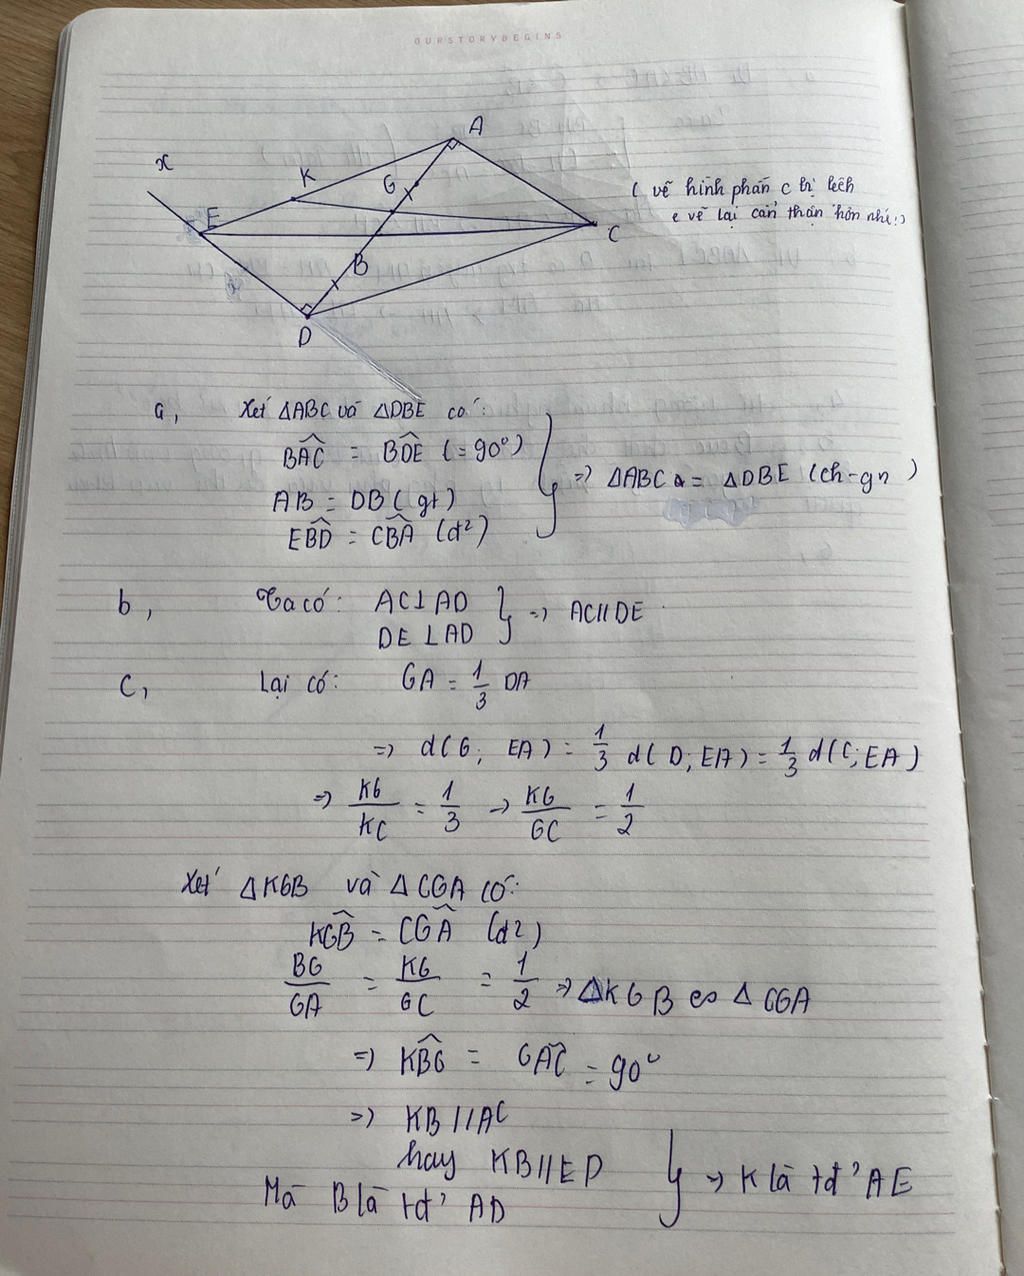 OURSTORYBEGINS
A
x
K
G
E
C
B
D
( vẽ hình phần c bị lệch
e vẽ lại cẩn thận hơn nhé!)
a, Xét ΔABC và ΔDBE có:
BAC^ = BDE^ (=90°)
AB = DB (gt) => ΔABC = ΔDBE (ch-gn)
EBD^ = CBA^ (đ²)
b, Ta có: AC⊥AD
DE⊥AD => AC//DE
c, Lại có: GA = 1/3 DA
=> d(G; EA) = 1/3 d(D; EA) = 1/3 d(C; EA)
=> KG/KC = 1/3 -> KG/GC = 1/2
Xét ΔKGB và ΔCGA có:
KGB^ = CGA^ (đ²)
BG/GA = KG/GC = 1/2 => ΔKGB ∽ ΔCGA
=> KBG^ = GAC^ = 90°
=> KB//AC
hay KB//ED => K là tđ' AE
Mà B là tđ' AD